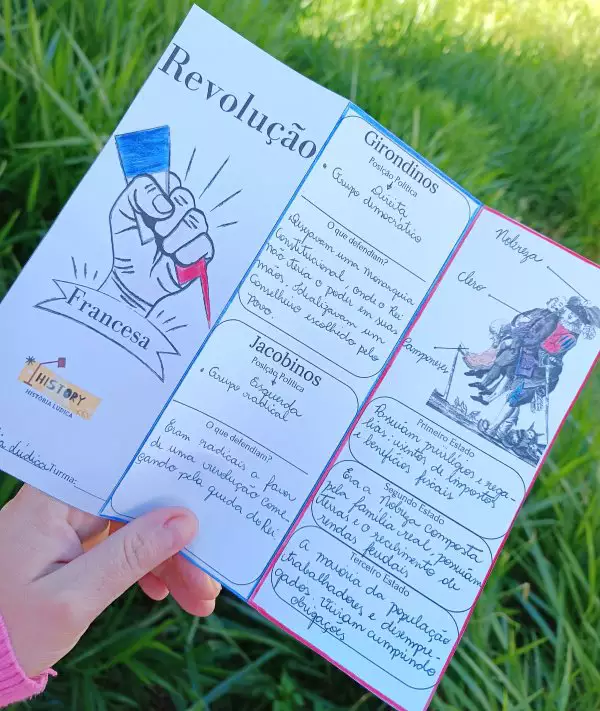 Revolução
Francesa
HISTORY
HISTÓRIA LÚDICA
Lúdica Turma:
Girondinos
Posição Política
Direita
• Grupo democrático
O que defendiam?
Desejavam uma monarquia
Constitucional, onde o Rei
não teria o poder em suas
mãos. Idealizavam um
Conselheiro escolhido pelo
povo.
Jacobinos
Posição Política
Esquerda
• Grupo radical
O que defendiam?
Eram radicais a favor
de uma revolução come-
çando pela queda do Rei
Nobreza
Clero
Camponeses
Primeiro Estado
Possuíam privilégios e rega-
lias: isentos de impostos
e benefícios fiscais
Segundo Estado
Era a Nobreza composta
pela família real, possuíam
terras e o recebimento de
rendas feudais
Terceiro Estado
A maioria da população
trabalhadores e desempre-
gados. Viviam cumprindo
obrigações